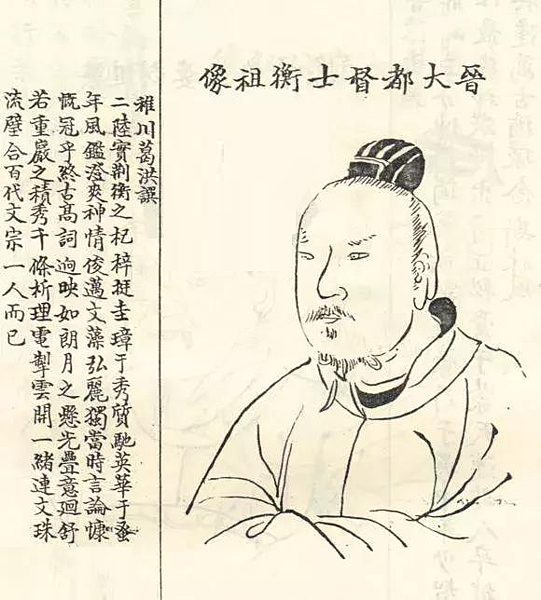 晉大都督士衡祖像
稚川葛洪譔
二陸實荆衡之杞梓挺圭璋于秀質馳英華于蚤
年風鑑澄爽神情俊邁文藻弘麗獨當時言論慷
慨冠乎終古高詞逈映如朗月之懸光疊意迴舒
若重巖之積秀千條析理電掣雲開一緒連文珠
流璧合百代文宗一人而已